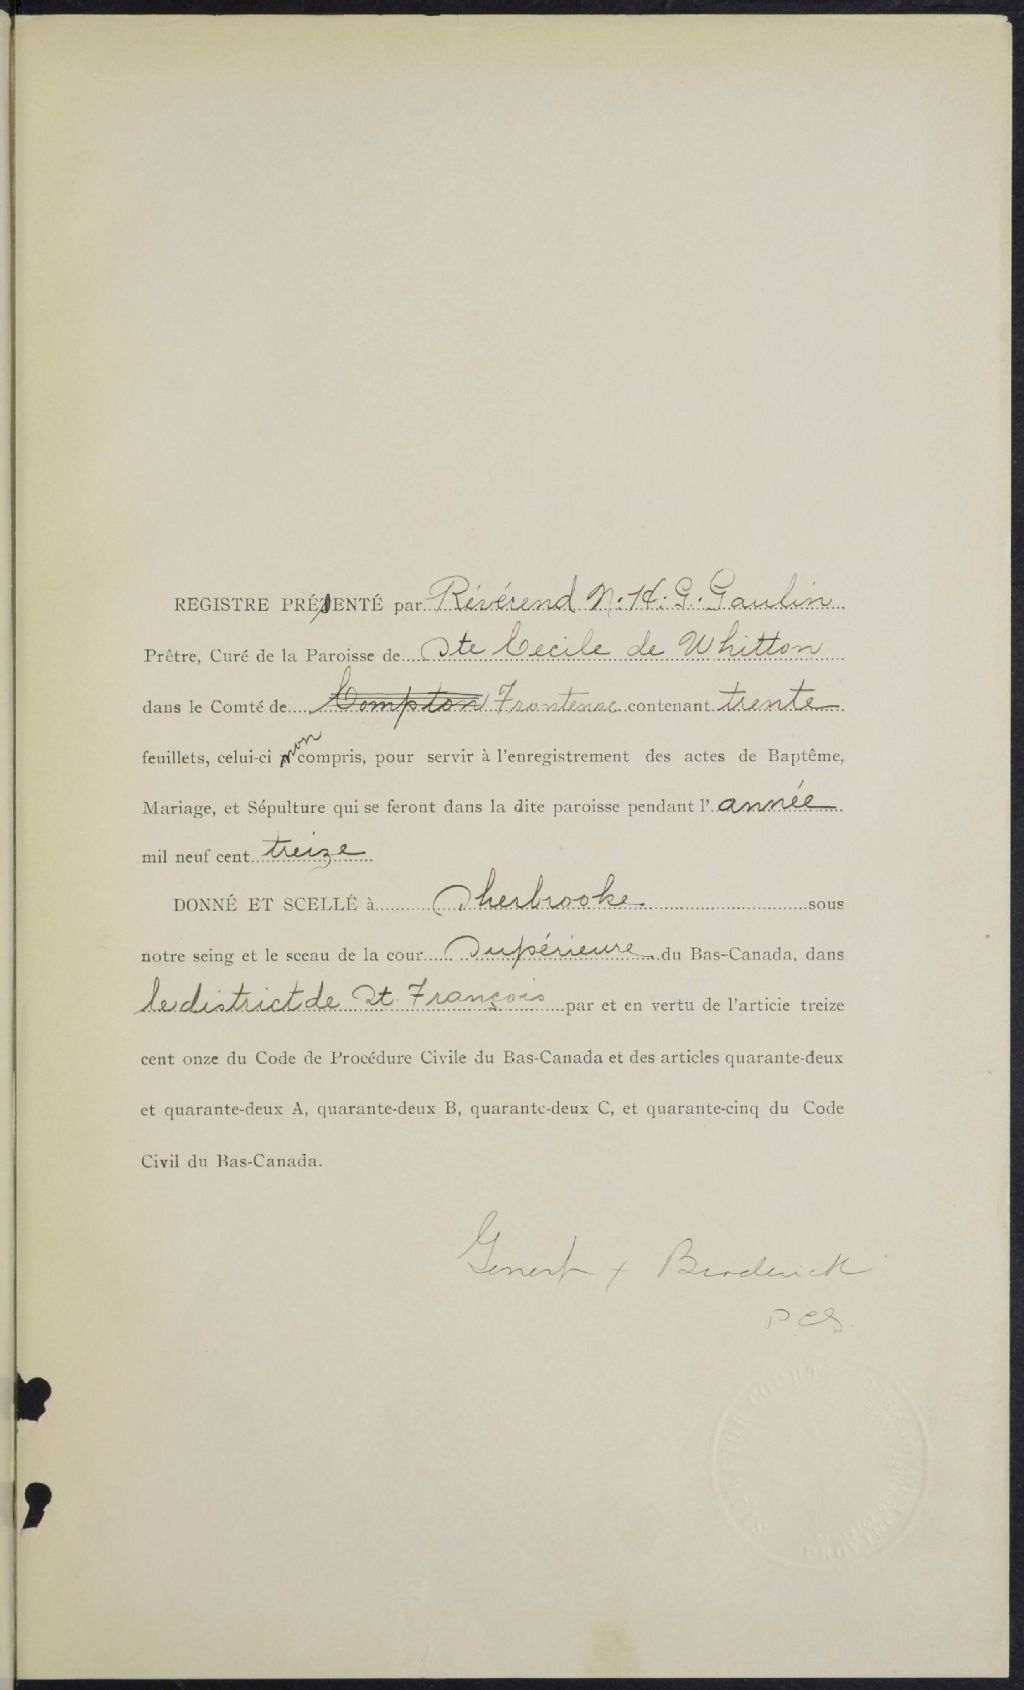 REGISTRE PRÉSENTÉ par Révérend N. H. G. Gaulin
Prêtre, Curé de la Paroisse de Ste Cecile de Whitton
dans le Comté de Compton Frontenac contenant trente
feuillets, celui-ci non compris, pour servir à l'enregistrement des actes de Baptême,
Mariage, et Sépulture qui se feront dans la dite paroisse pendant l' année
mil neuf cent treize
DONNÉ ET SCELLÉ à Sherbrooke sous
notre seing et le sceau de la cour Supérieure du Bas-Canada, dans
le district de St. François par et en vertu de l'articie treize
cent onze du Code de Procédure Civile du Bas-Canada et des articles quarante-deux
et quarante-deux A, quarante-deux B, quarante-deux C, et quarante-cinq du Code
Civil du Bas-Canada.
Genest & Broderick
P C S.